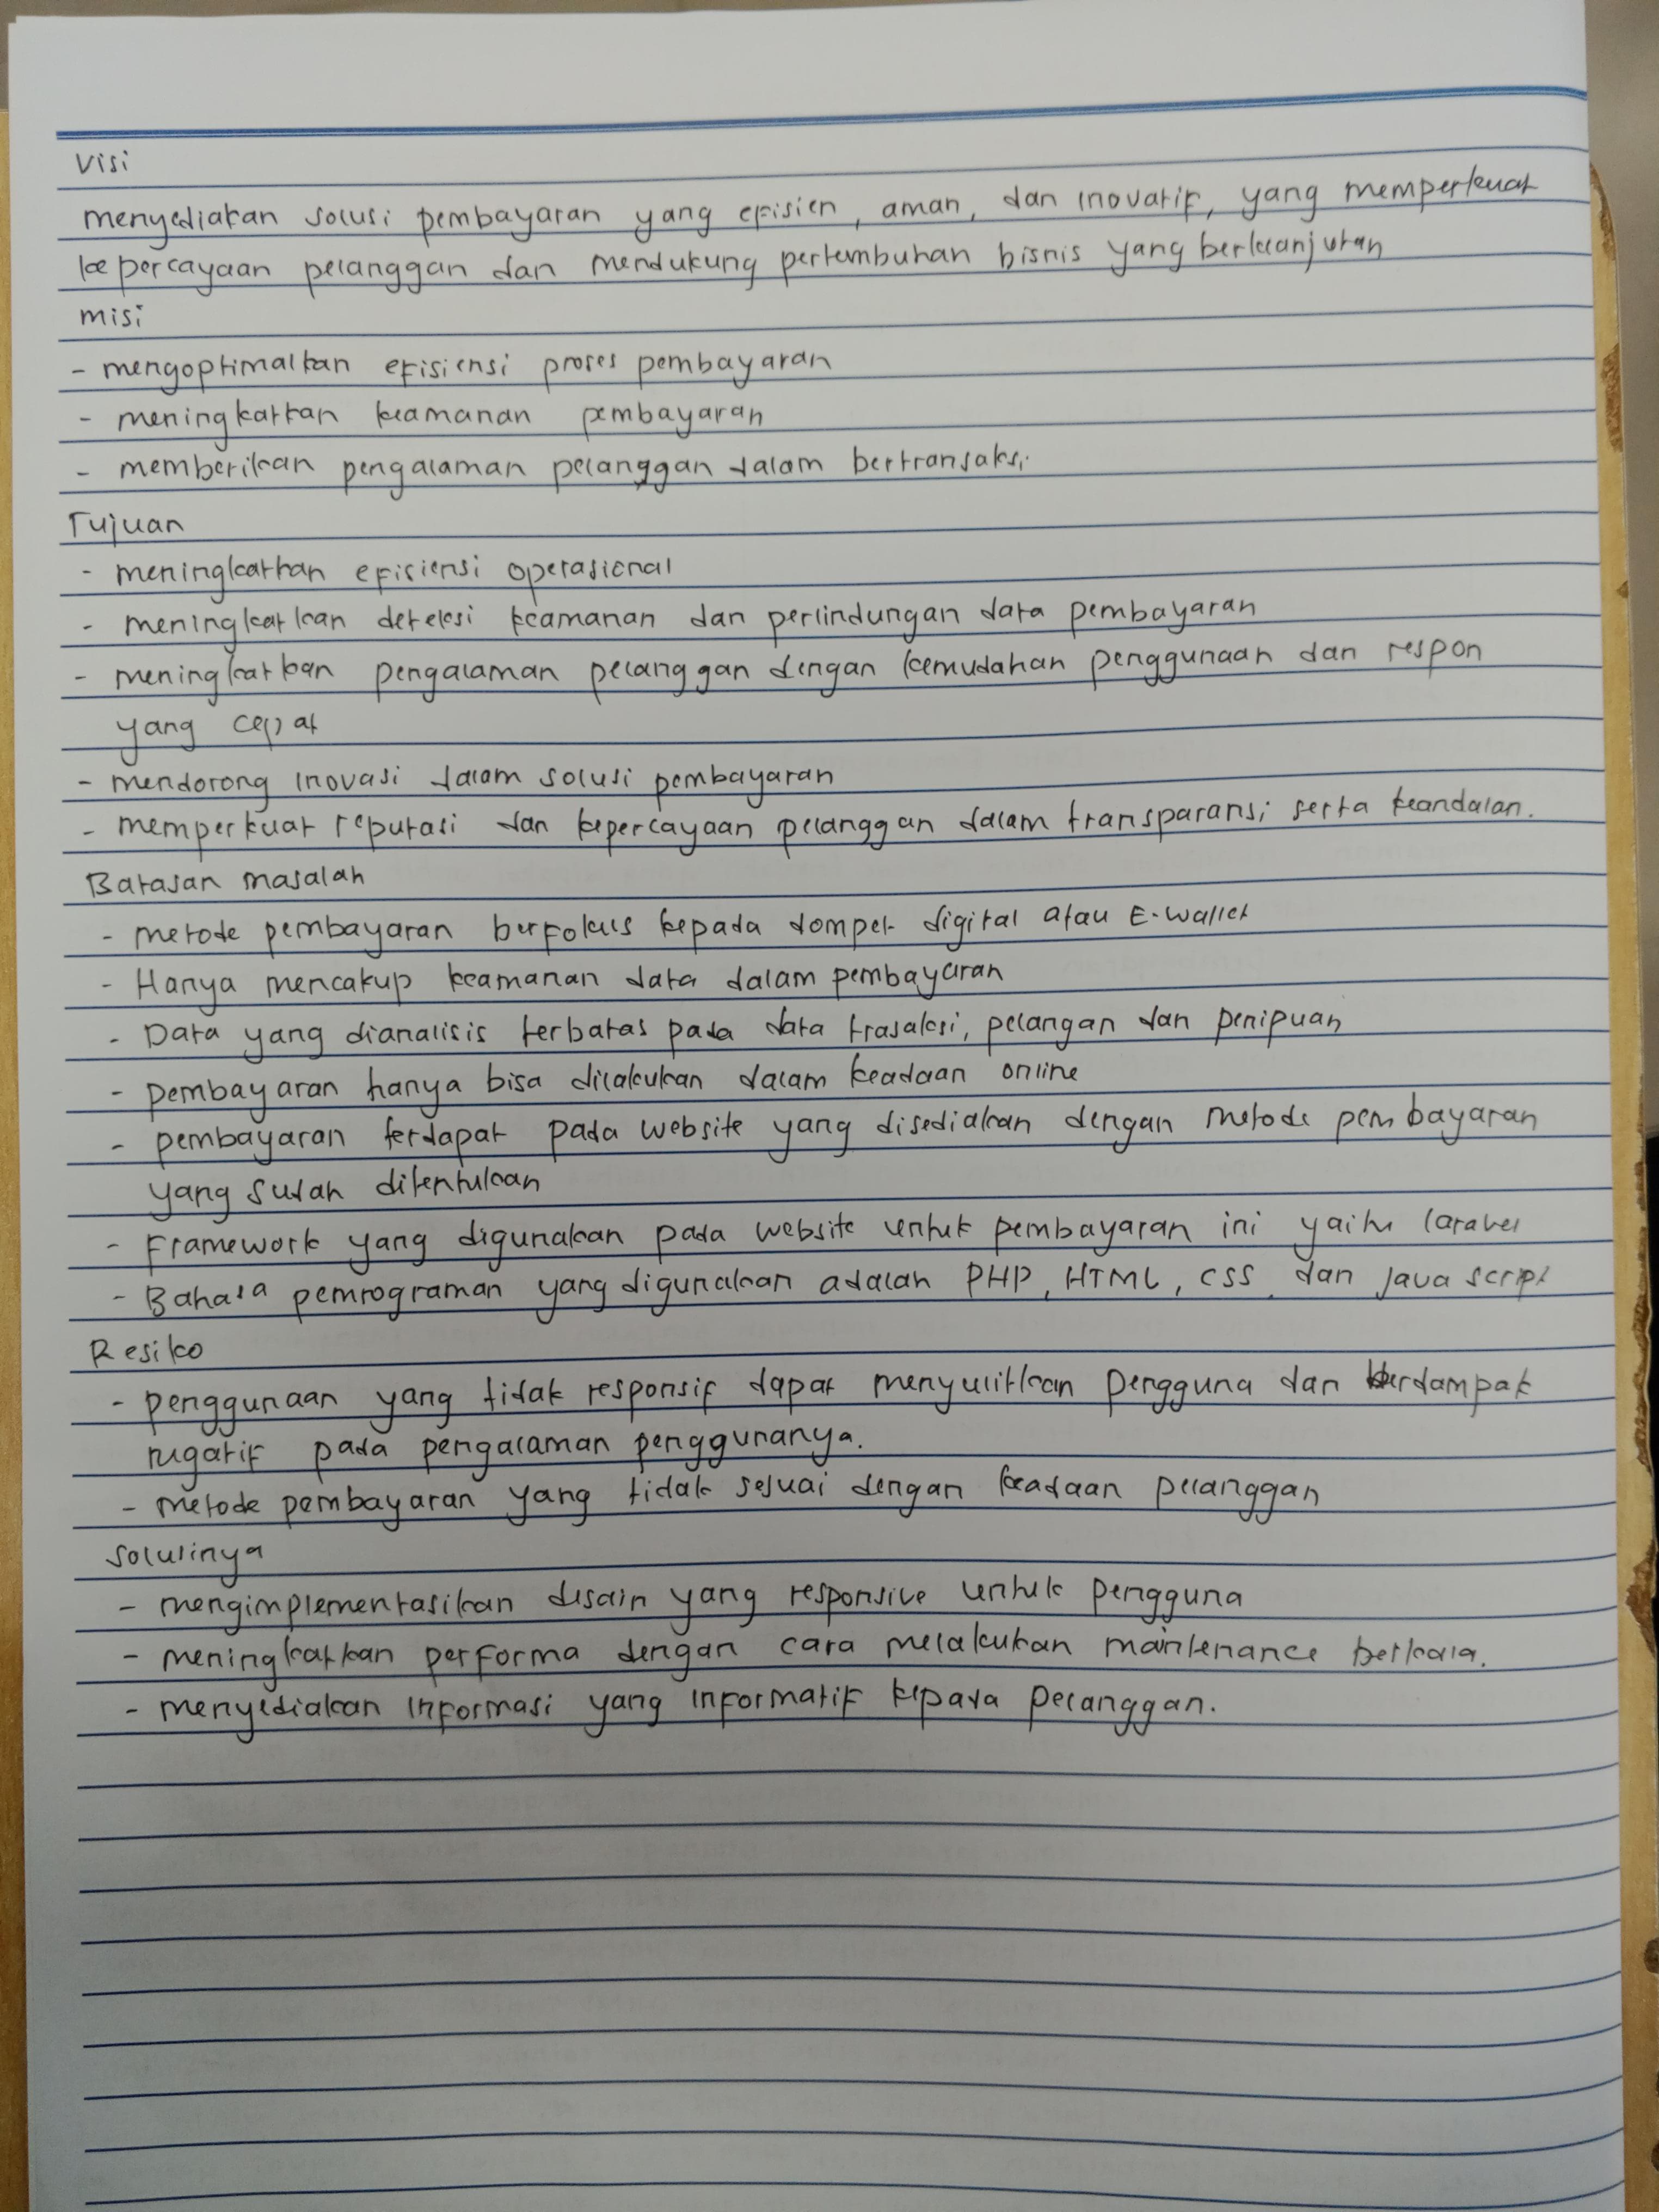 Visi
menyediakan solusi pembayaran yang efisien, aman, dan inovatif, yang memperkuat
kepercayaan pelanggan dan mendukung pertumbuhan bisnis yang berkelanjutan
misi
- mengoptimalkan efisiensi proses pembayaran
- meningkatkan keamanan pembayaran
- memberikan pengalaman pelanggan dalam bertransaksi
Tujuan
- meningkatkan efisiensi operasional
- meningkatkan deteksi keamanan dan perlindungan data pembayaran
- meningkatkan pengalaman pelanggan dengan kemudahan penggunaan dan respon
yang cepat
- mendorong inovasi dalam solusi pembayaran
- memperkuat reputasi dan kepercayaan pelanggan dalam transparansi serta keandalan.
Batasan masalah
- metode pembayaran berfokus kepada dompet digital atau E-wallet
- Hanya mencakup keamanan data dalam pembayaran
- Data yang dianalisis terbatas pada data trasaksi, pelangan dan penipuan
- pembayaran hanya bisa dilakukan dalam keadaan online
- pembayaran terdapat pada website yang disediakan dengan metode pembayaran
yang sudah ditentukan
- Framework yang digunakan pada website untuk pembayaran ini yaitu laravel
- Bahasa pemrograman yang digunakan adalah PHP, HTML, CSS, dan Java script
Resiko
- penggunaan yang tidak responsif dapat menyulitkan pengguna dan berdampak
negatif pada pengalaman penggunanya.
- metode pembayaran yang tidak sesuai dengan keadaan pelanggan
Solusinya
- mengimplementasikan desain yang responsive untuk pengguna
- meningkatkan performa dengan cara melakukan maintenance berkala.
- menyediakan informasi yang informatif kepada pelanggan.